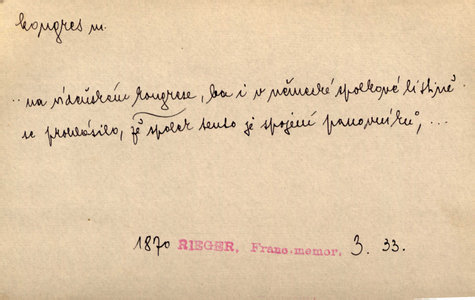 kongres m.
.. na vídeňském kongrese, ba i v německé spolkové listině
se prohlásilo, že spolek tento je spojení panovníků, ...
1870 RIEGER, Franc. memor. 3. 33.